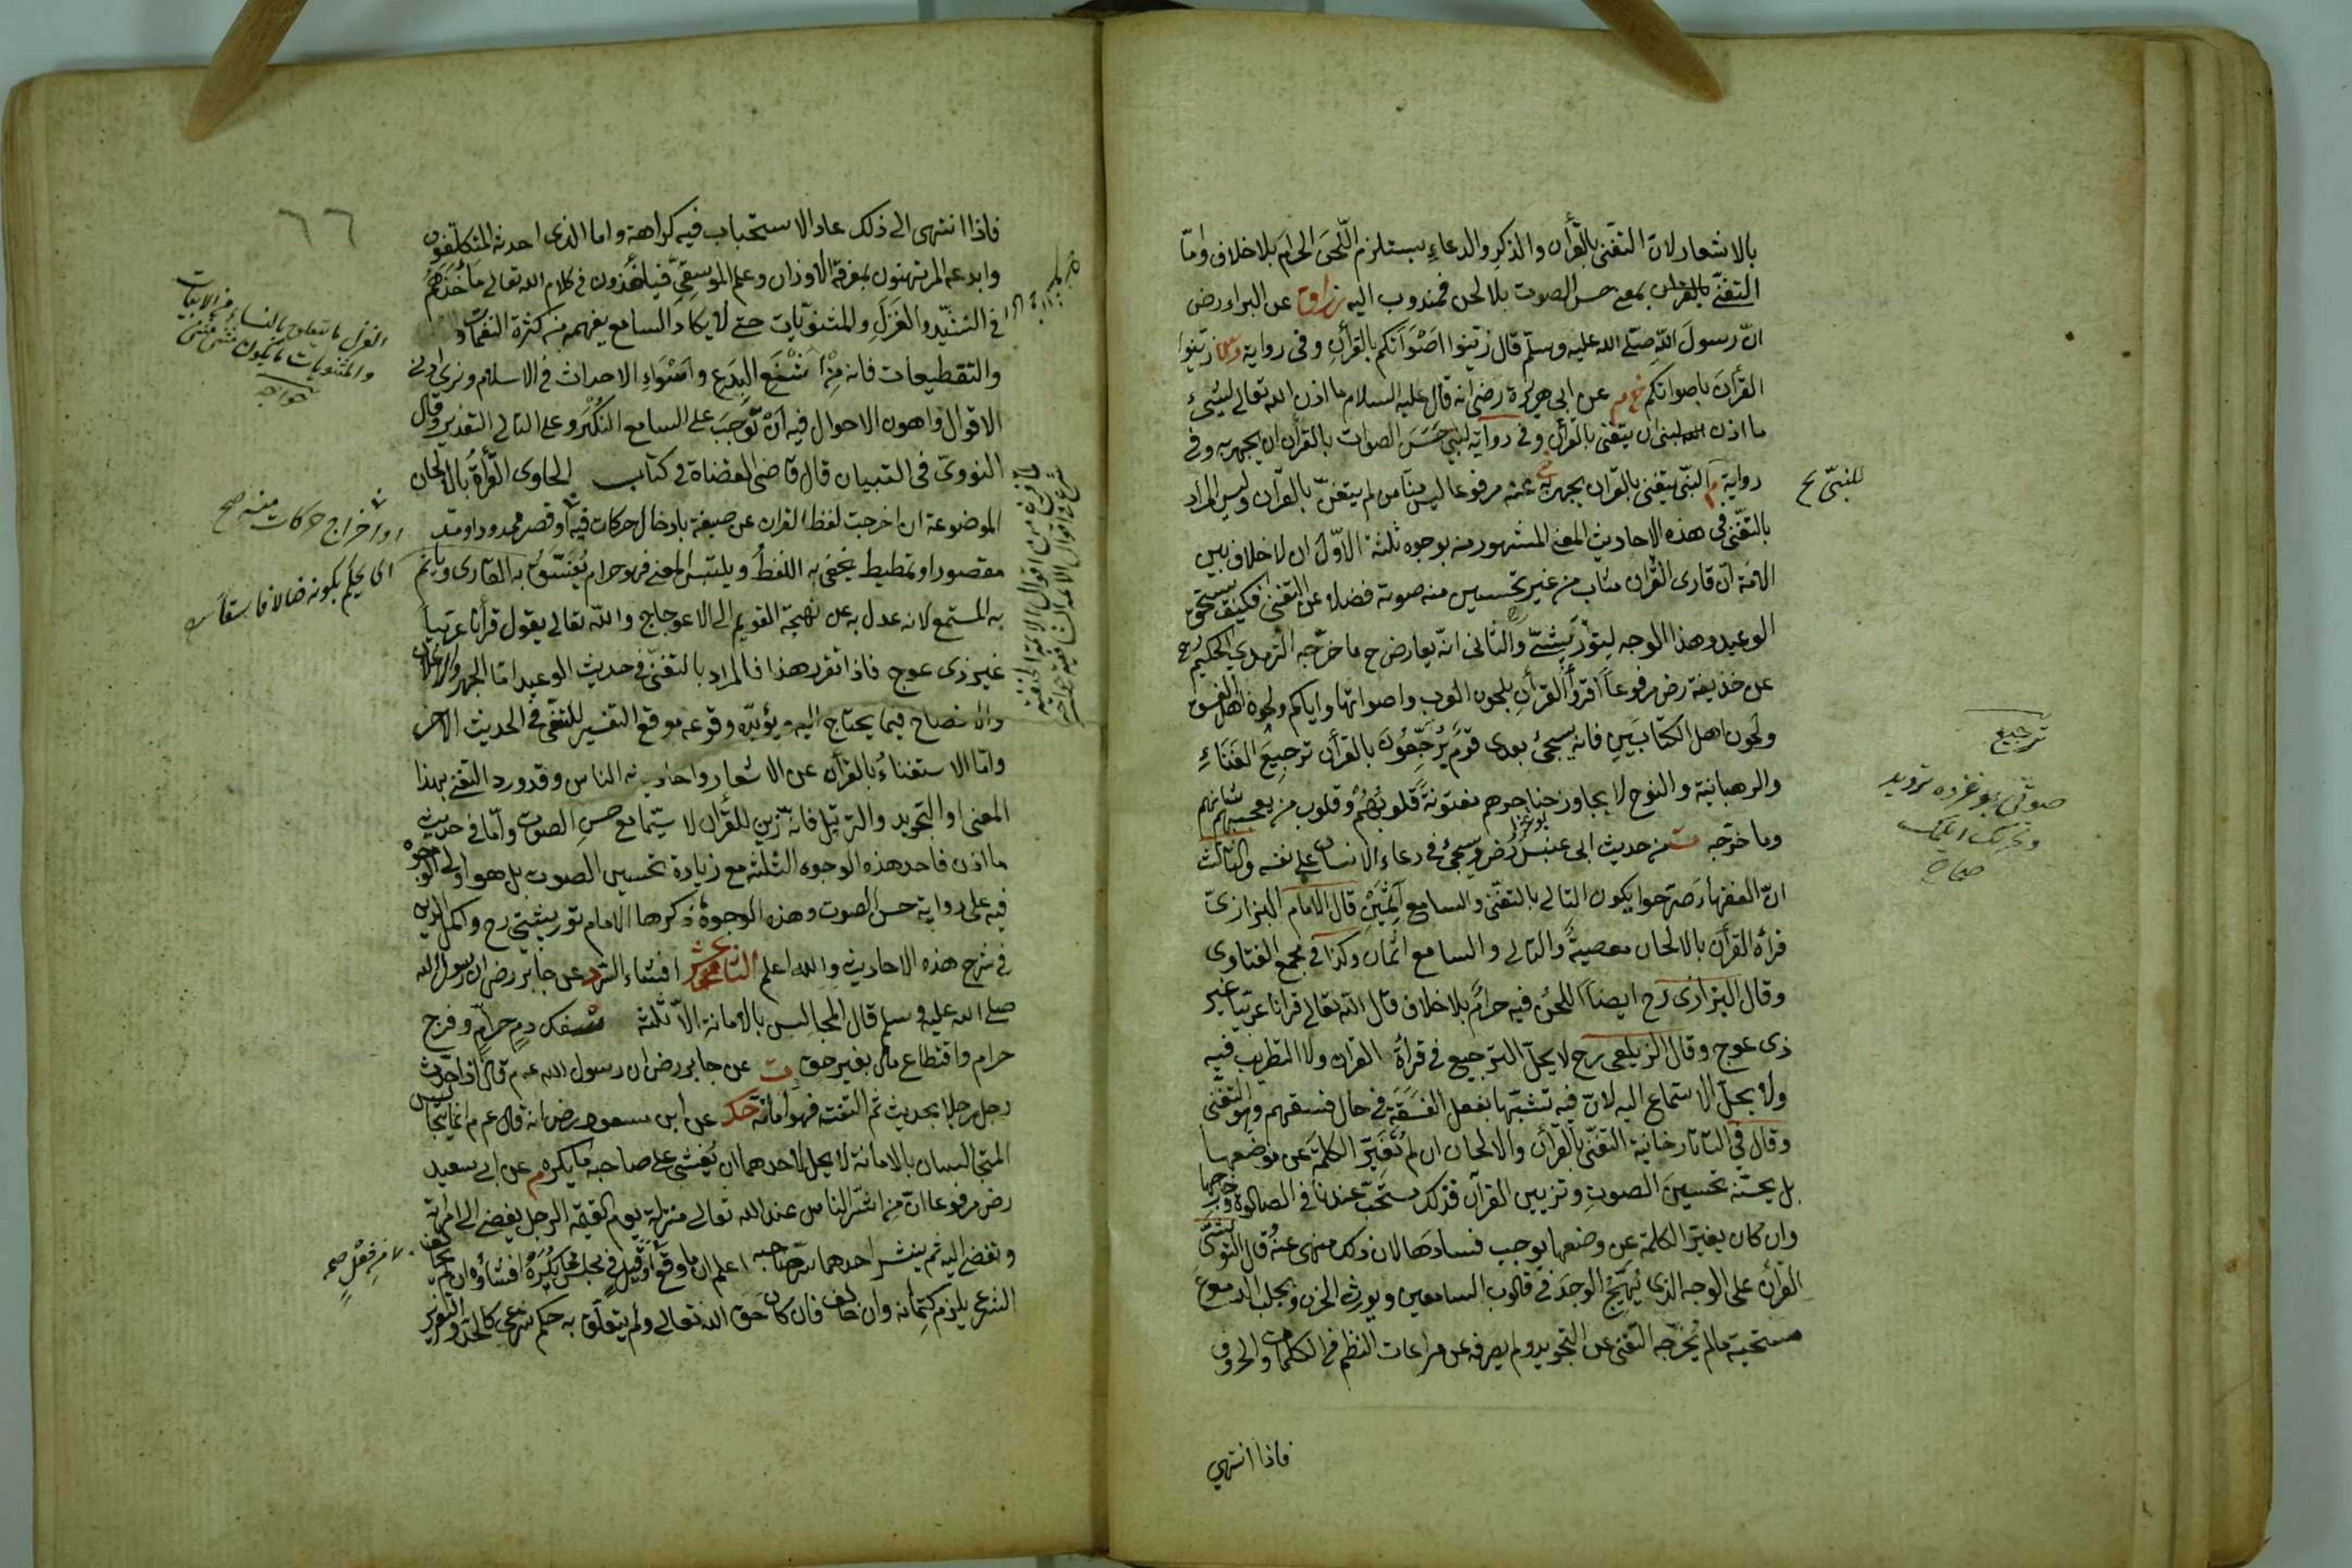 بالاشعار لان التغني بالقرأن والذكر والدعاء يستلزم اللحن الحرام بلا خلاف واما
التغني بالقرأن بمعنى حسن الصوت بلا لحن فمندوب اليه عن البراء رض
ان رسول الله صلى الله عليه وسلم قال زينوا اصواتكم بالقرأن وفى رواية زينوا
القرأن باصواتكم خ م عن ابى هريرة رضى انه قال عليه السلام ما اذن الله تعالى لشئ
ما اذن لنبى ان يتغنى بالقرأن وفى رواية لنبي حسن الصوت بالقرأن ان يجهر به وفى
رواية م النبي يتغنى بالقرأن يجهر به خ عنه مرفوعا ليس منا من لم يتغن بالقرأن وليس المراد
للنبي صح
بالتغني فى هذه الاحاديث المعنى المشهور منه بوجوه ثلثة الاول ان لا خلاف بين
الامة ان قارى القرأن مثاب من غير تحسين منه صوته فضلا عن التغني فكيف يستحق
الوعيد وهذا الوجه لتوربشتى والثانى انه يعارض ح ما خرجه الترمذي الحكيم رح
عن حذيفة رض مرفوعا اقرؤا القرأن بلحون العرب واصواتها واياكم ولحون اهل الفسق
ولحون اهل الكتابين فانه سيجئ بعدى قوم يرجعون بالقرأن ترجيع الغناء
ترجيع
والرهبانية والنوح لا يجاوز حناجرهم مفتونة قلوبهم وقلوب من يعجبهم شانهم
وما خرجه من حديث ابى عنبس رض وسيجئ فى دعاء الانسان على نفسه والثالث
ان الفقهاء صرحوا بكون التالى بالتغني والسامع آثمين قال الامام البزازى
قرأة القرأن بالالحان معصية والتالى والسامع آثمان وكذا فى مجمع الفتاوى
وقال البزازى رح ايضا اللحن فيه حرام بلا خلاف قال الله تعالى قرانا عربيا غير
ذى عوج وقال الزيلعى رح لا يحل الترجيع فى قرأة القرأن ولا التطريب فيه
ولا يحل الاستماع اليه لان فيه تشبها بفعل الفسقة فى حال فسقهم وهو التغني
وقال فى التاتارخانية التغني بالقرأن والالحان ان لم تغير الكلمة عن موضعها
بل يحسنه تحسين الصوت وتزيين القرأن فذلك مستحب عندنا فى الصلوة وخارجها
وان كان يغير الكلمة عن وضعها يوجب فسادها لان ذلك منهى عنه قال التوربشتى
القرأن على الوجه الذى يهيج الوجد فى قلوب السامعين ويورث الحزن ويجلب الدموع
مستحبة مالم يخرجه التغني عن التجويد ولم يصرفه عن مراعات النظم فى الكلمات والحروف
فاذا انتهى
٦٦
فاذا انتهى الى ذلك عاد الاستحباب فيه كراهة واما الذى احدثه المتكلفون
وابدعه المرتهنون بمعرفة الاوزان وعلم الموسيقى فيأخذون فى كلام الله تعالى مأخذهم
فى التشيد والغزل والمثنويات حتى لا يكاد السامع يفهمه من كثرة النغمات
الغزل ما يتعلق بالنساء من الابيات
والمثنويات ما يكون مثنى مثنى
خواجه
والتقطيعات فانه من اشنع البدع واسواء الاحداث فى الاسلام ونرى ادنى
الاقوال واهون الاحوال فيه ان توجب على السامع النكير وعلى التالى التعذير وقال
النووى فى التبيان قال قاضى القضاة فى كتاب الحاوى القرأة بالالحان
الموضوعة ان اخرجت لفظ القران عن صيغة بادخال حركات فيه او قصر ممدود او مد
او اخراج حركات منه صح
مقصور او تمطيط يخفى به اللفظ ويلتبس المعنى فهو حرام يفسق به القارى وياثم
اى يحكم بكونه ضالا فاسقا
به المستمع لانه عدل به عن نهجه القويم الى الاعوجاج والله تعالى يقول قرأنا عربيا
غير ذى عوج فاذا تقرر هذا فالمراد بالتغني فى حديث الوعيد اما الجهر والاعلان
والافصاح فيما يحتاج اليه ويؤيده وقوعه موقع التفسير للتغني فى الحديث الاخر
واما الاستغناء بالقرأن عن الاشعار واحاديث الناس وقد ورد التغني بهذا
المعنى او التجويد والترتيل فانه تزيين للقرأن لا سيما مع حسن الصوت واما فى حديث
ما اذن فاحد هذه الوجوه الثلثة مع زيادة تحسين الصوت بل هو اولى الوجوه
فيه على رواية حسن الصوت وهذه الوجوه ذكرها الامام توربشتى رح واكمل الدين
فى شرح هذه الاحاديث والله اعلم افشاء السر د عن جابر رض ان رسول الله
صلى الله عليه وسلم قال المجالس بالامانة الا ثلثة سفك دم حرام وفرج
حرام واقتطاع مال بغير حق ت عن جابر رض ان رسول الله عم قال اذا حدث
رجل رجلا بحديث ثم التفت فهو امانة حك عن ابن مسعود رض انه قال عم انما يتجالس
المتجالسان بالامانة لا يحل لاحدهما ان يفشى على صاحبه ما يكره م عن ابى سعيد
رض مرفوعا ان من اشر الناس عند الله تعالى منزلة يوم القيمة الرجل يفضى الى امرأته
وتفضى اليه ثم ينشر احدهما سر صاحبه اعلم ان ما وقع او قيل فى مجلس مما يكره افشاؤه ان لم يخالف
من فعل صح
الشرع يلزم كتمانه وان خالف فان كان حق الله تعالى ولم يتعلق به حكم شرعى كالحد والتعزير